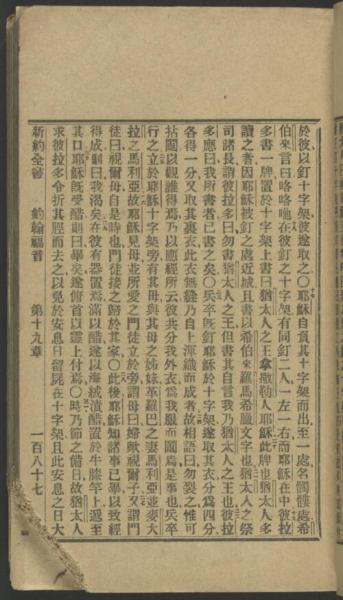 於彼以釘十字架彼遂取之〇耶穌自負其十字架而出至一處名髑髏處希
伯來言曰咯咯吔在彼釘之十字架有同釘二人一左一右而耶穌在中彼拉
多書一牌置於十字架上書曰猶太人之王拿撒勒人耶穌此牌也猶太人多
讀之者因耶穌被釘之處近城且書以希伯來羅馬希臘文字也猶太人之祭
司諸長謂彼拉多曰勿書猶太人之王但書其自言我乃猶太人之王也彼拉
多應曰我所書者已書之矣〇兵卒既釘耶穌於十字架遂取其衣分爲四分
各得一分又取其裏衣此衣無縫乃自上渾織而成者故相語曰勿裂之惟可
拈鬮以觀誰得焉乃以應經所云彼共分我外衣爲我服而鬮焉是事也兵卒
行之立於耶穌十字架旁有其母與其母之姊妹革羅巴之妻馬利亞並麥大
拉之馬利亞故耶穌見母並所愛之門徒立於旁謂母曰婦歟視爾子又謂門
徒曰視爾母自是時也門徒接之歸於其家〇此後耶穌知諸事已畢以致經
得成則曰我渴矣在彼有器置焉滿以醋遂以海絨漬醋置於牛膝竿上遞至
其口耶穌既受醋則曰畢矣遂俯首以靈上付焉〇時乃節之備日故猶太人
求彼拉多令折其脛而去之以免於安息日留屍在十字架且此安息之日大
新約全書 約翰福音 第十九章 一百八十七